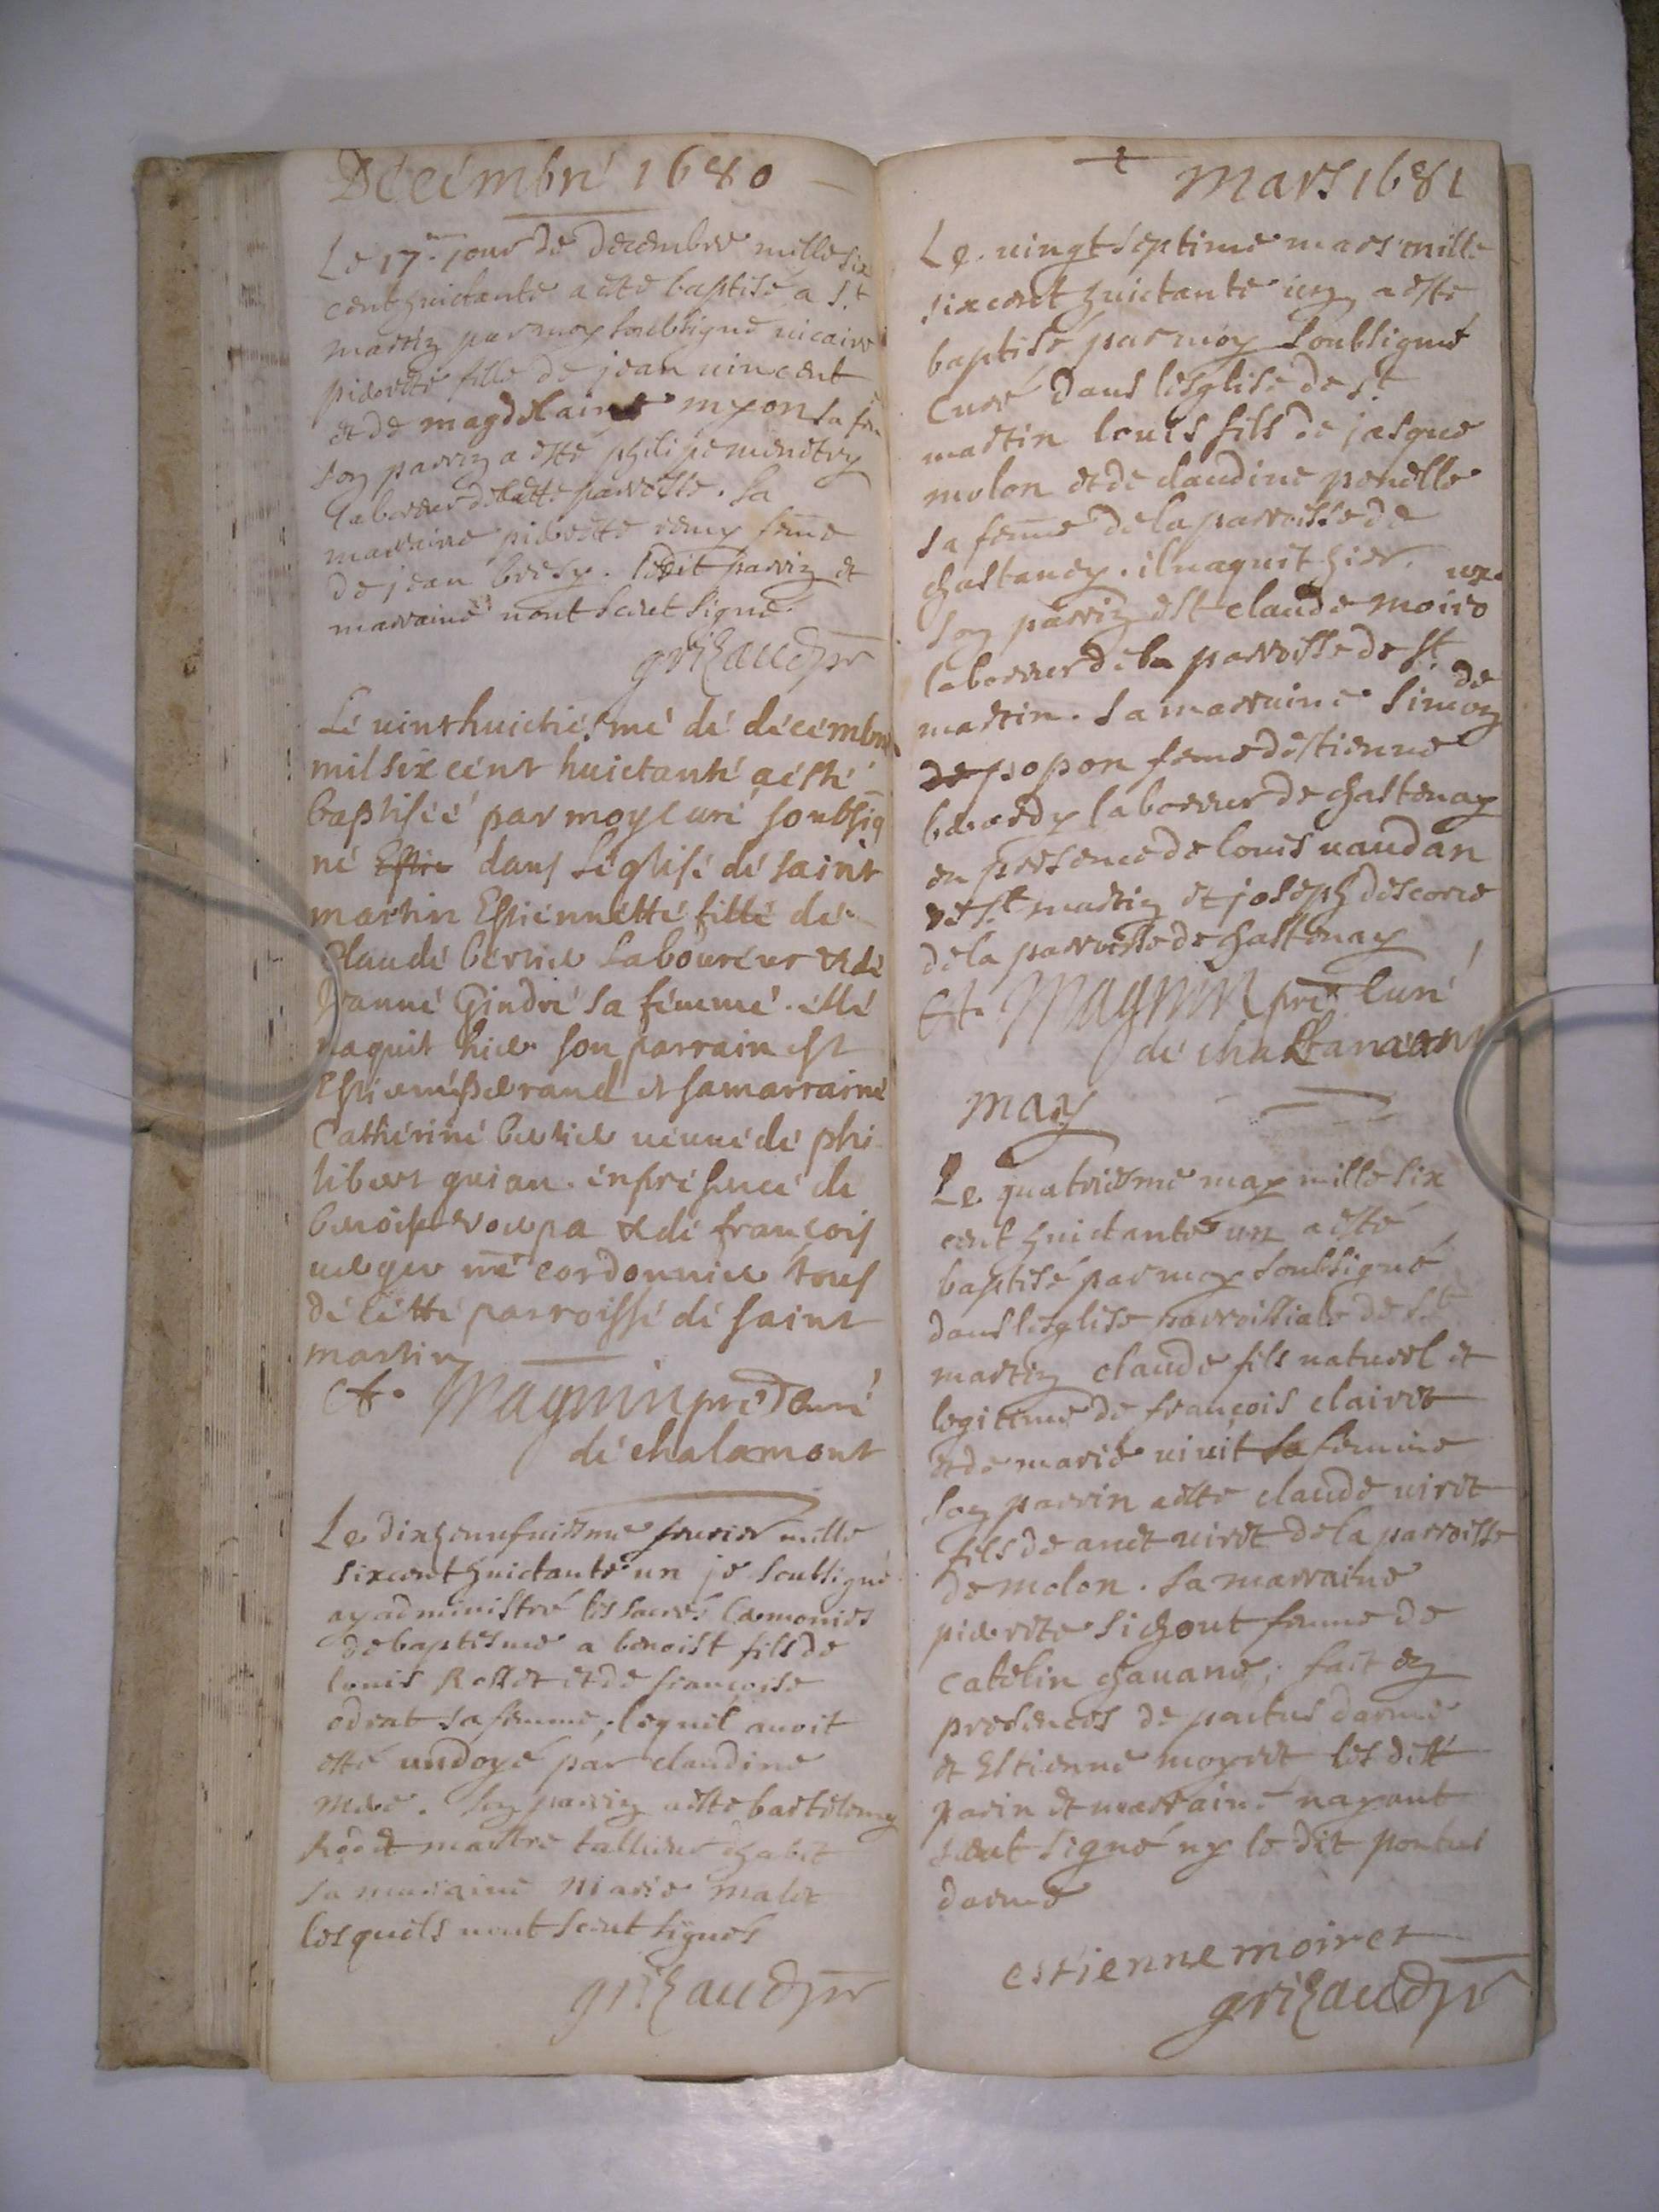 Décémbré 1680
Le 17.me jour de decembre mille six
cent huictante a esté baptisé a St
martin par moy soubsigné vicaire
pierrete fille de jean vincent
et de magdelaine myon sa fe.
son parrin a esté philipe menetry
laboreur de laditte parroisse. La
marraine pierrette remy feme
de jean bresy. ledit parrin et
marraine n'ont sceut signé
grizaud ptr
Lé vint huictié.mé dé décémbré
mil six cént huictanté a ésté
baptiséé par moy curé soubsig
né Estie dans L'églisé dé saint
martin Estiénnétté fillé dé
Claudé bérnié Labouréur & dé
Jeanné Gindré sa fémmé. éllé
naquit hier son parrain est
Estienné ferrand et sa marrainé
Cathériné bernié veuvé dé phi
libert guian. én présencé dé
benoist & dé françois
mé cordonnier tous
dé cétté parroissé dé saint
martin
Magnin pré curé
dé chalamont
Le dixheuf... feurier mille
sixcent huictante un je soubsigné
ay administré les sacrés ceremonies
de baptesme a benoist fils de
louis Rosset et de françoise
odrat sa femme; lequel avoit
esté undoyé par claudine
mere. son parrin a esté bartelemy
maistre tallieur d'habit
sa marraine marie malet
lesquels n'ont sceut signés
grizaud ptr
Mars 1681
Le vingt septime mars mille
sixcent huictante un a esté
baptisé par moy soubsigné
Curé dans l'esglise de St
martin louis fils de jasque
molon et de claudine penelle
sa feme de la parroisse de
chastaney. il naquit hier.
son parrin est claude moiro
laboreur de la parroisse de St
martin. sa marraine Simon de
de popon feme d'estienne
laboreur de chastenay
en presence de louis vaudan
de St martin et joseph descorie
de la parroisse de chastenay
Magnin pré curé
dé
may
Le quatriesme may mille six
cent huictante un a esté
baptisé par moy soubsigné
dans l'esglise parroissiale de St
martin claude fils naturel et
legitime de françois clairet
et de marie vivit sa femme
son parrin a esté claude viret
fils de anet viret de la parroisse
de molon. sa marraine
pierrete sichout femme de
catelin chavane; fait en
presences de pontus darme
et Estienne moyret les dett
parin et marraine n'ayant
sceut signé ny le dit pontus
darme
estienne moiret
grizaud ptr